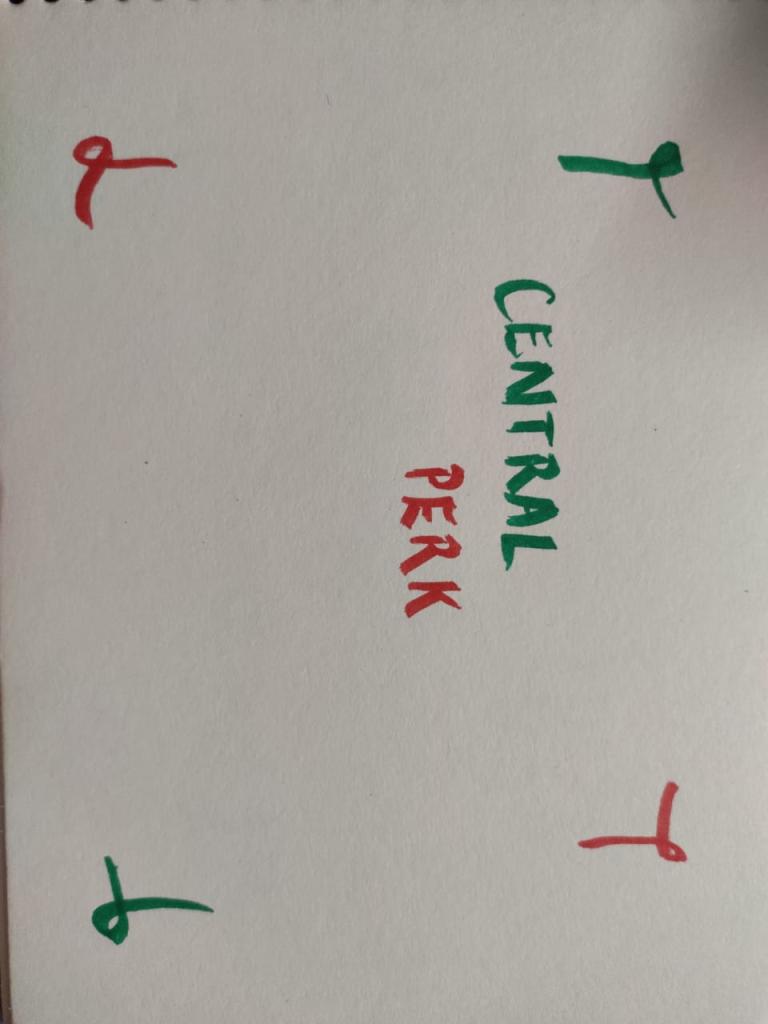 CENTRAL
PERK